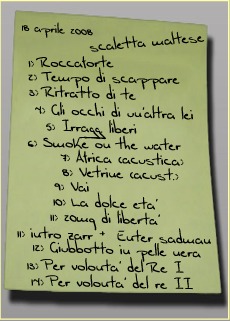 18 aprile 2008
scaletta maltese
1) Roccaforte
2) Tempo di scappare
3) Ritratto di te
4) Gli occhi di un'altra lei
5) Irragg liberi
6) Smoke on the water
7) Africa (acustica)
8) Vetrine (acust.)
9) Vai
10) La dolce eta'
11) 20mg di liberta'
11) intro zarr + Enter sadman
12) Giubbotto in pelle nera
13) Per volonta' del Re I
14) Per volonta' del re II